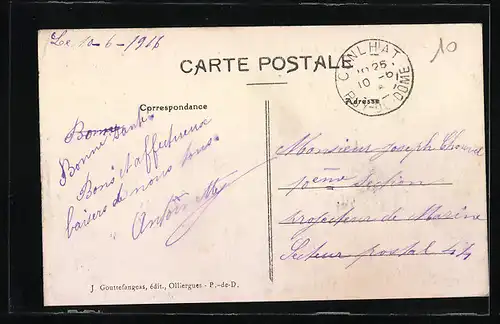 Le 10-6-1916
10
CARTE POSTALE
CUNLHAT
10 25
10 -6
PUY-DE-DOME
Correspondance
Adresse
Bonne
Bonne santé
Bons et affectueux
baisers de nous tous
Monsieur Joseph
10ème Section
projecteur de Marine
Secteur postal 44
J. Gouttefangeas, édit., Olliergues - P.-de-D.